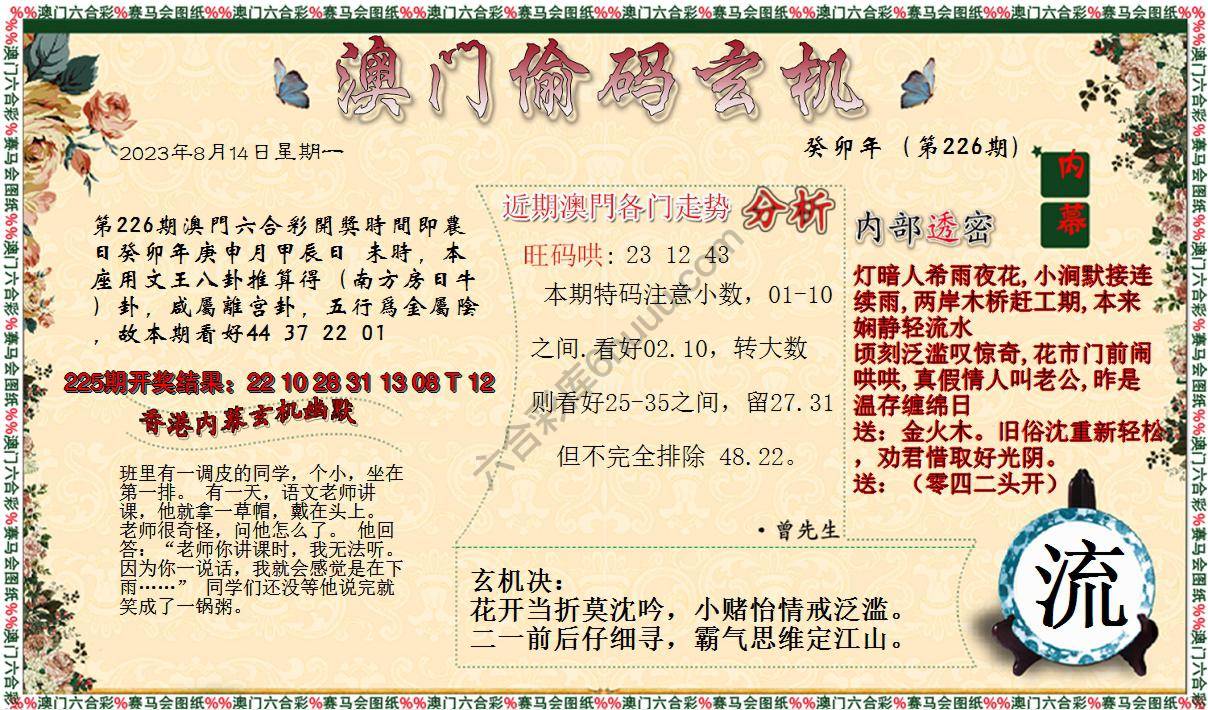 %%澳门六合彩%赛马会图纸%%澳门六合彩%赛马会图纸%%澳门六合彩%赛马会图纸%%澳门六合彩%赛马会图纸%%澳门六合彩%赛马会图纸%%澳门六合彩%赛马会图纸%%
澳门偷码玄机
2023年8月14日星期一
癸卯年（第226期）
内幕
第226期澳門六合彩開獎時間即農
日癸卯年庚申月甲辰日 未時，本
座用文王八卦推算得（南方房日牛
）卦，咸屬離宫卦，五行爲金屬陰
，故本期看好44 37 22 01
225期开奖结果：22 10 28 31 13 08 T 12
香港内幕玄机幽默
班里有一调皮的同学，个小，坐在
第一排。 有一天，语文老师讲
课，他就拿一草帽，戴在头上。
老师很奇怪，问他怎么了。 他回
答：“老师你讲课时，我无法听。
因为你一说话，我就会感觉是在下
雨……” 同学们还没等他说完就
笑成了一锅粥。
近期澳門各门走势 分析
旺码哄: 23 12 43
本期特码注意小数，01-10
之间.看好02.10，转大数
则看好25-35之间，留27.31
但不完全排除 48.22。
·曾先生
内部透密
灯暗人希雨夜花,小涧默接连
续雨,两岸木桥赶工期,本来
娴静轻流水
顷刻泛滥叹惊奇,花市门前闹
哄哄,真假情人叫老公,昨是
温存缠绵日
送：金火木。旧俗沈重新轻松
，劝君惜取好光阴。
送：（零四二头开）
玄机决：
花开当折莫沈吟，小赌怡情戒泛滥。
二一前后仔细寻，霸气思维定江山。
流